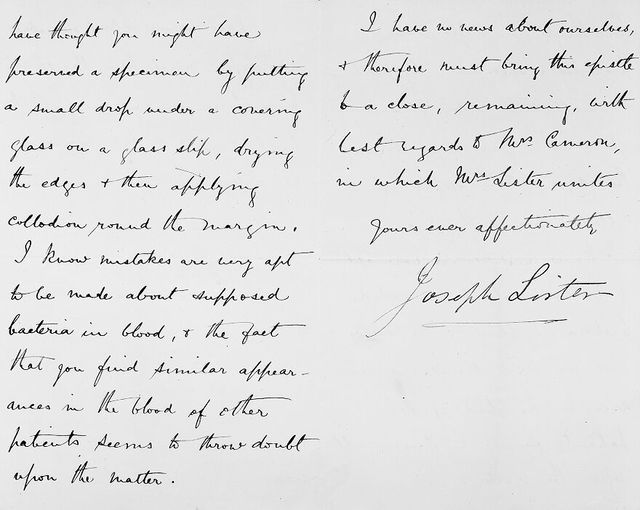 have thought you might have
preserved a specimen by putting
a small drop under a covering
glass on a glass slip, drying
the edges & then applying
collodion round the margin.
I know mistakes are very apt
to be made about supposed
bacteria in blood, & the fact
that you find similar appear-
ances in the blood of other
patients seems to throw doubt
upon the matter.
I have no news about ourselves,
& therefore must bring this epistle
to a close, remaining, with
best regards to Mrs. Cameron,
in which Mrs Lister unites
Yours ever affectionately
Joseph Lister